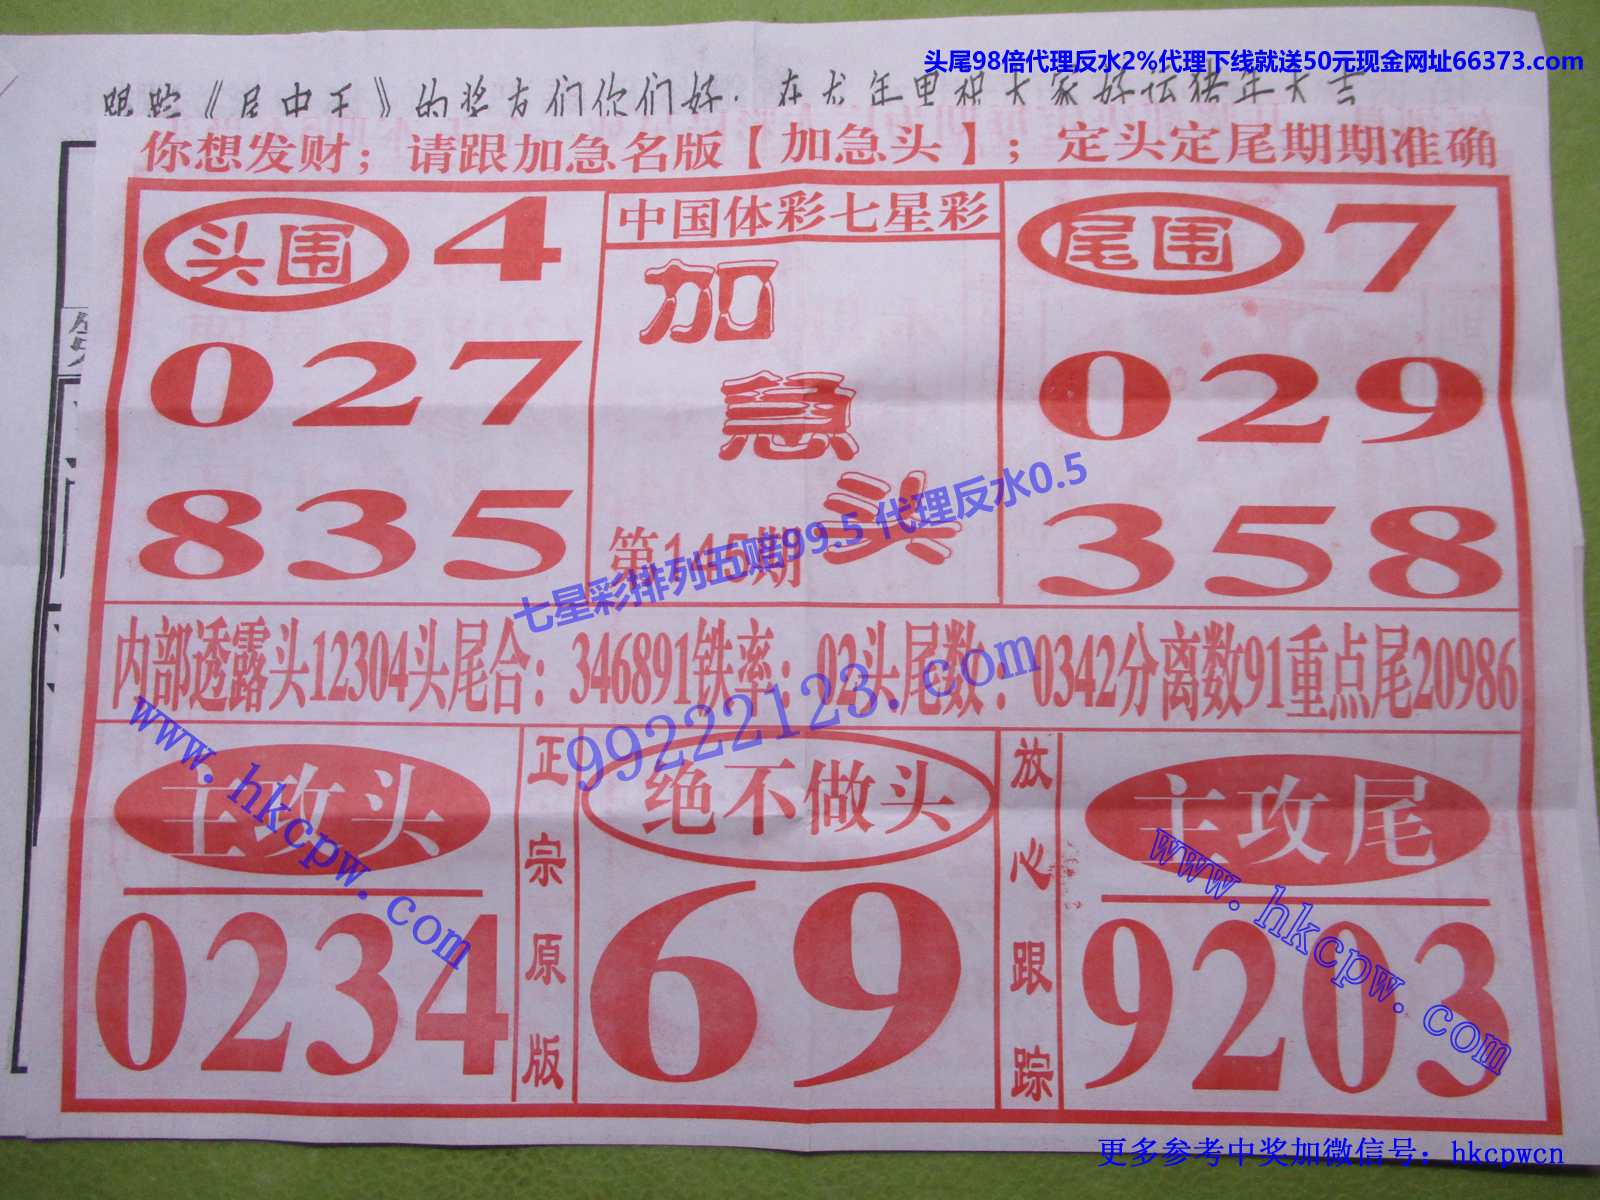 头尾98倍代理反水2%代理下线就送50元现金网址66373.com
跟踪《居中王》的奖友们你们好.在犬年里祝大家好运猪年大吉
你想发财；请跟加急名版【加急头】；定头定尾期期准确
头围 4
027
835
中国体彩七星彩
加
急
头
第145期
尾围 7
029
358
七星彩排列五赔99.5 代理反水0.5
内部透露头12304头尾合：346891铁率：02头尾数：0342分离数91重点尾20986
99222123.com
www.hkcpw.com
主攻头
0234
正宗原版
绝不做头
69
放心跟踪
主攻尾
9203
www.hkcpw.com
更多参考中奖加微信号：hkcpwcn